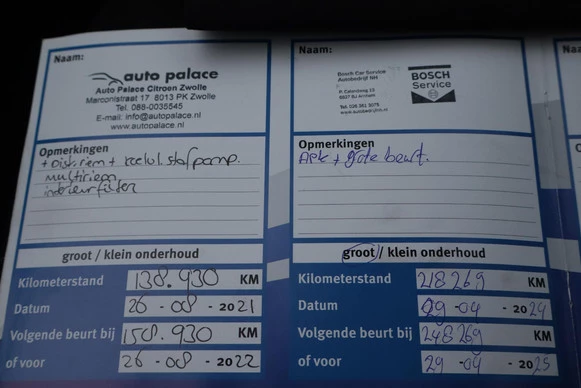 Naam:
auto palace
Auto Palace Citroen Zwolle
Marconistraat 17 8013 PK Zwolle
Tel. 088-0035545
E-mail: info@autopalace.nl
www.autopalace.nl
Opmerkingen
+ Distr. riem + koelvloeistofpomp.
multiriem
interieurfilter
groot / klein onderhoud
Kilometerstand 138.930 KM
Datum 26 -08 - 2021
Volgende beurt bij 158.930 KM
of voor 26 -08 - 2022
Naam:
Bosch Car Service
Autobedrijf NH
BOSCH
Service
Opmerkingen
APK + grote beurt.
groot / klein onderhoud
Kilometerstand 218269 KM
Datum 29 -04 - 2024
Volgende beurt bij 248269 KM
of voor 29 -04 - 2025